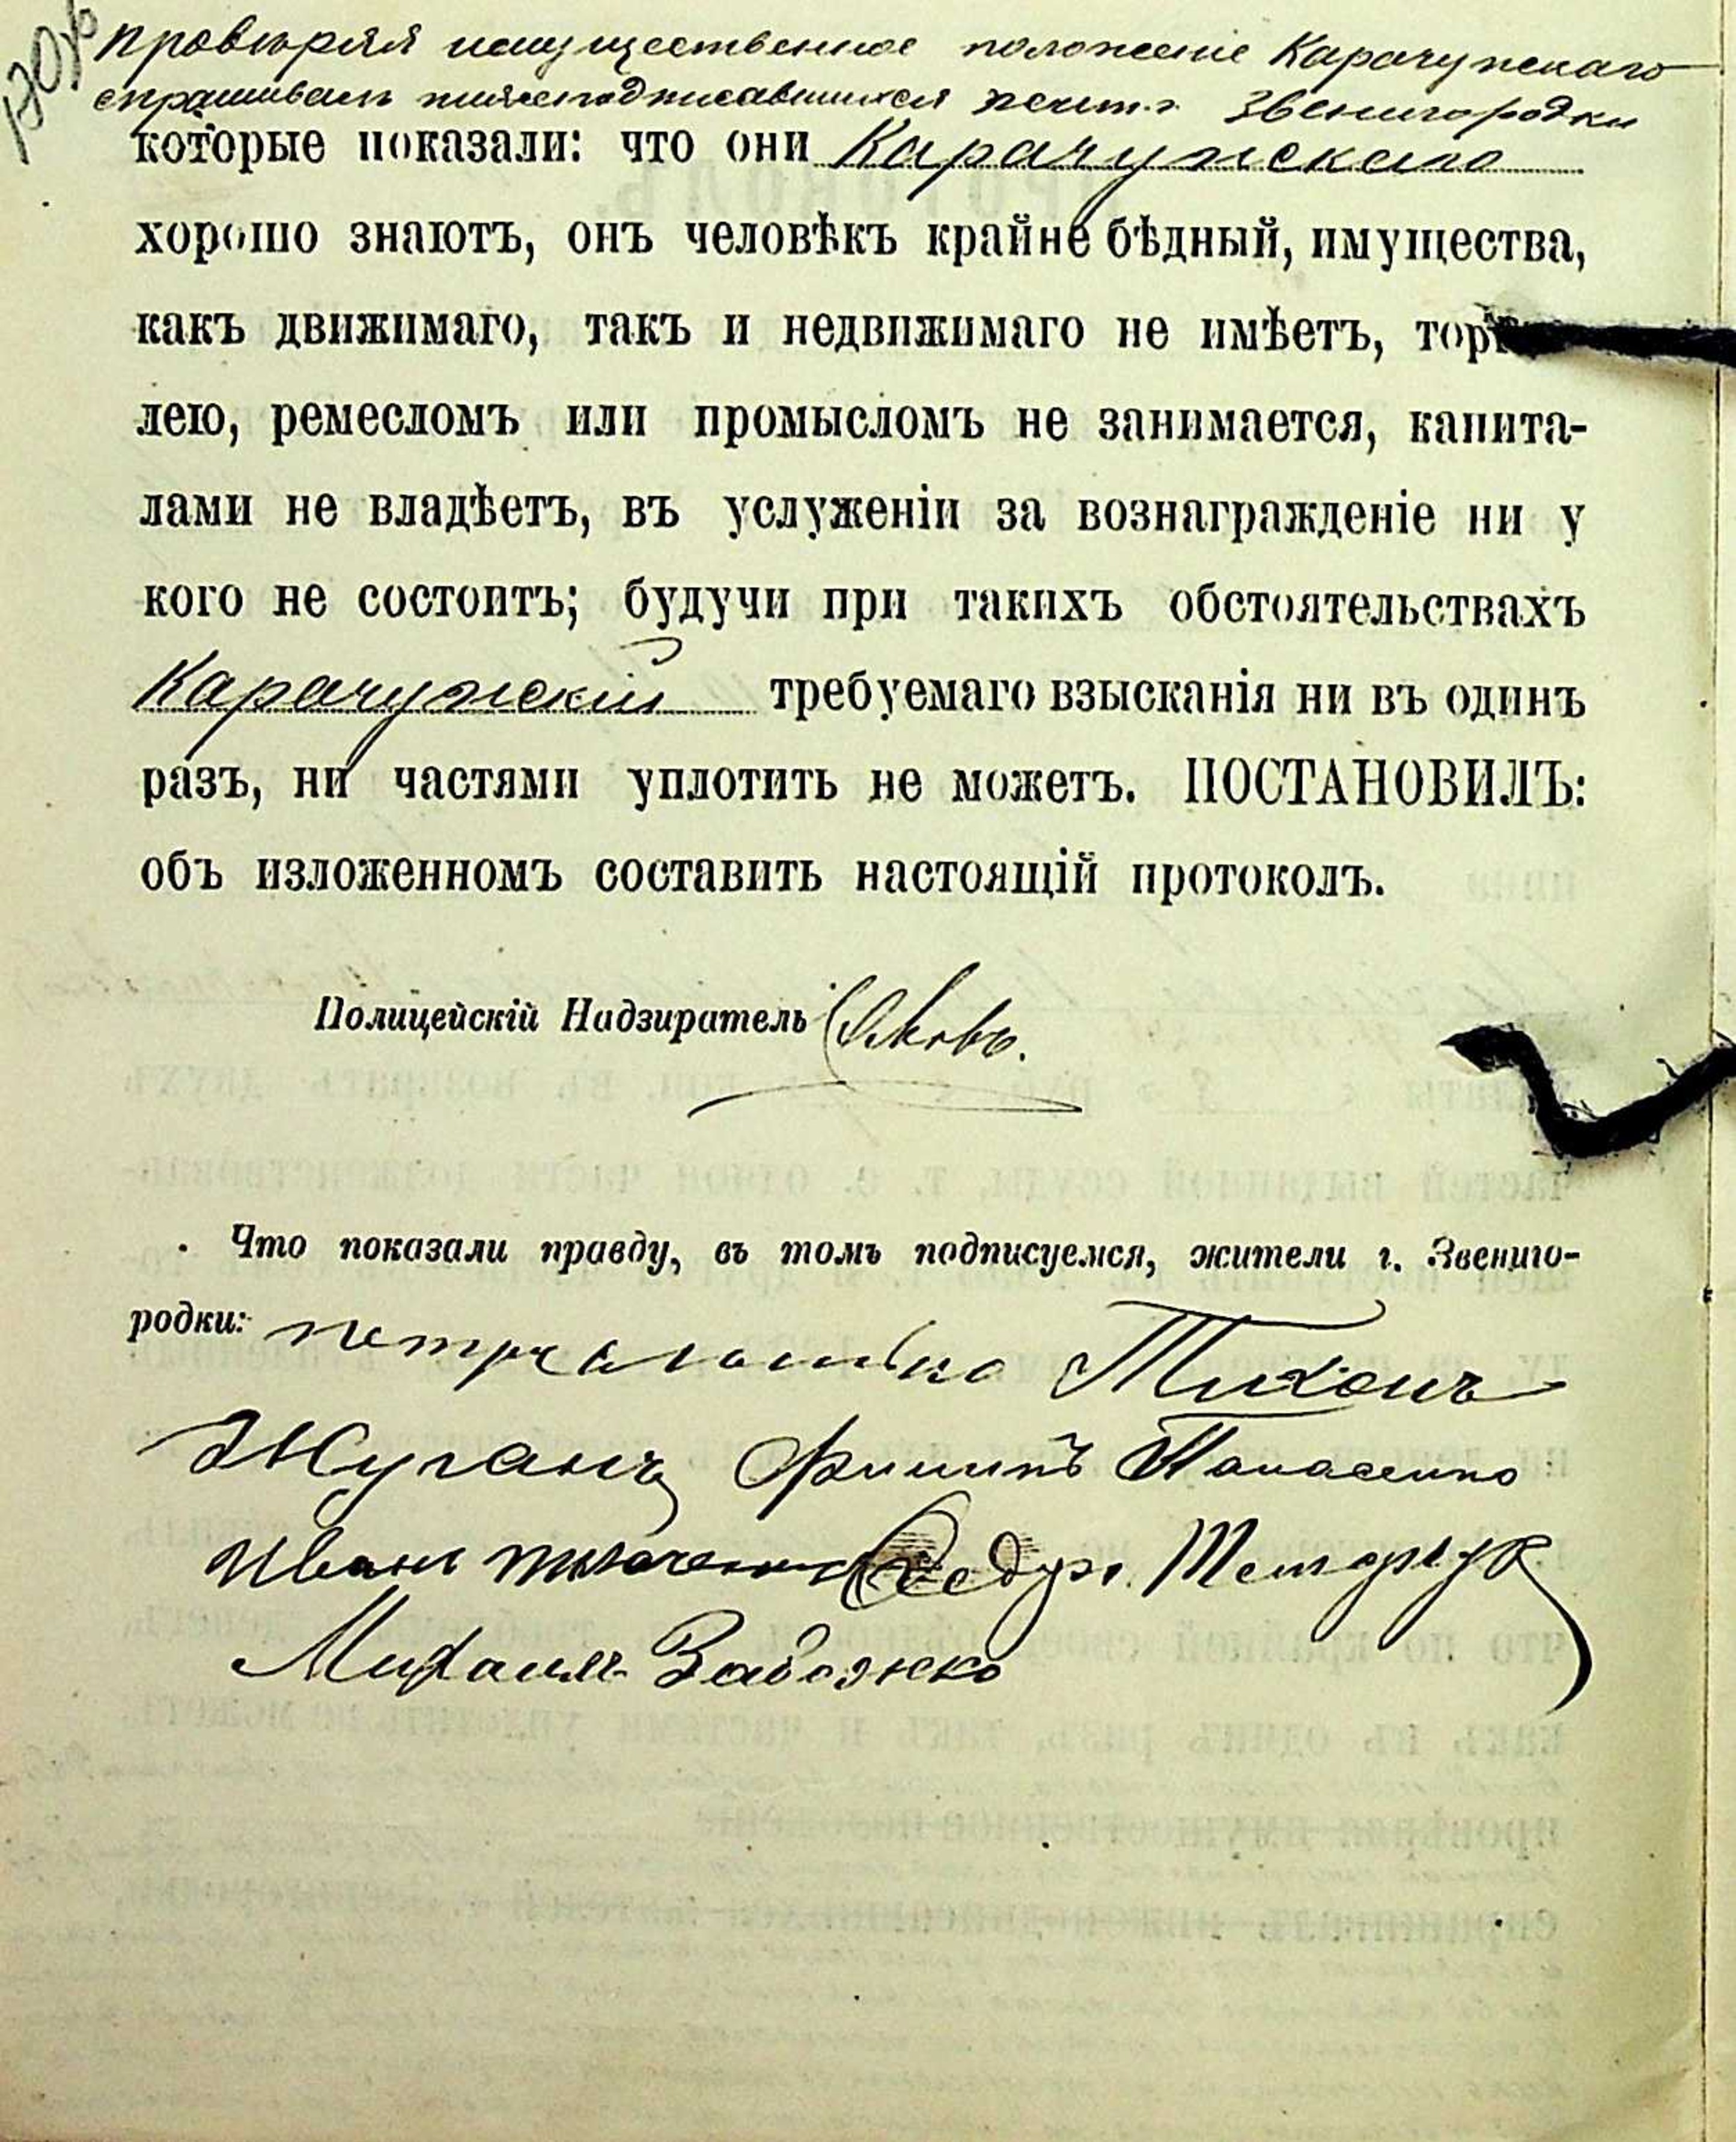 провѣряя имущественное положеніе Карачунскаго
спрашивалъ нижеподписавшихся жит. г. Звенигородки
которые показали: что они Карачунскаго
хорошо знаютъ, онъ человѣкъ крайне бѣдный, имущества,
какъ движимаго, такъ и недвижимаго не имѣетъ, торг
лею, ремесломъ или промысломъ не занимается, капита-
лами не владѣетъ, въ услуженіи за вознагражденіе ни у
кого не состоитъ; будучи при такихъ обстоятельствахъ
Карачунскій требуемаго взысканія ни въ одинъ
разъ, ни частями уплотить не можетъ. ПОСТАНОВИЛЪ:
объ изложенномъ составить настоящій протоколъ.
Полицейскій Надзиратель
Что показали правду, въ томъ подписуемся, жители г. Звениго-
родки: Тихонъ
Жуганъ Филипъ Панасенко
Иванъ Ткаченко Федоръ
Михаилъ